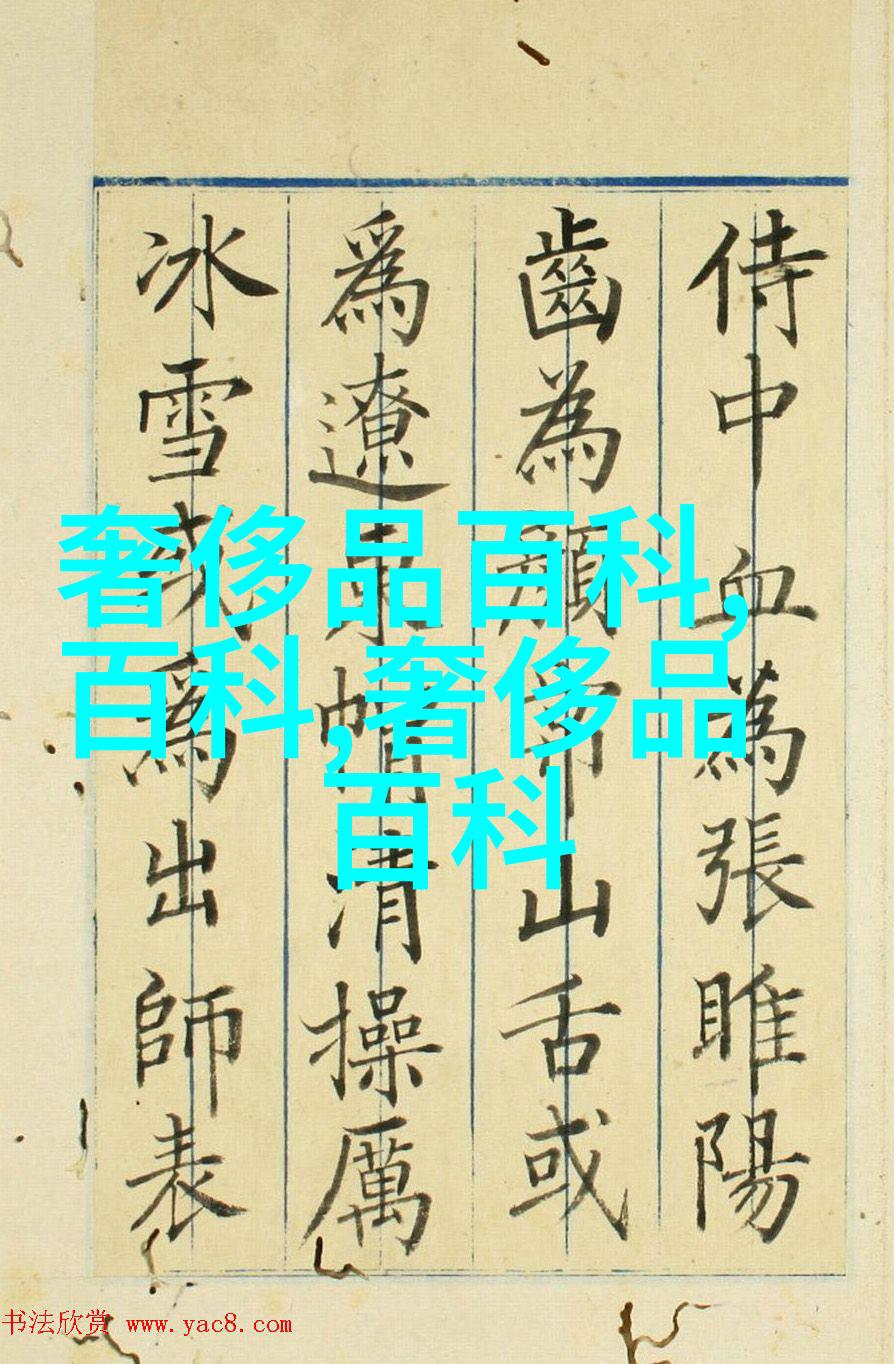 侍中血為張睢陽
齒為顏常山舌或
為遼東帽清操厲
冰雪或為出師表
奢侈品百科,
百科,奢侈品
百科
书法欣赏 www.yac8.com